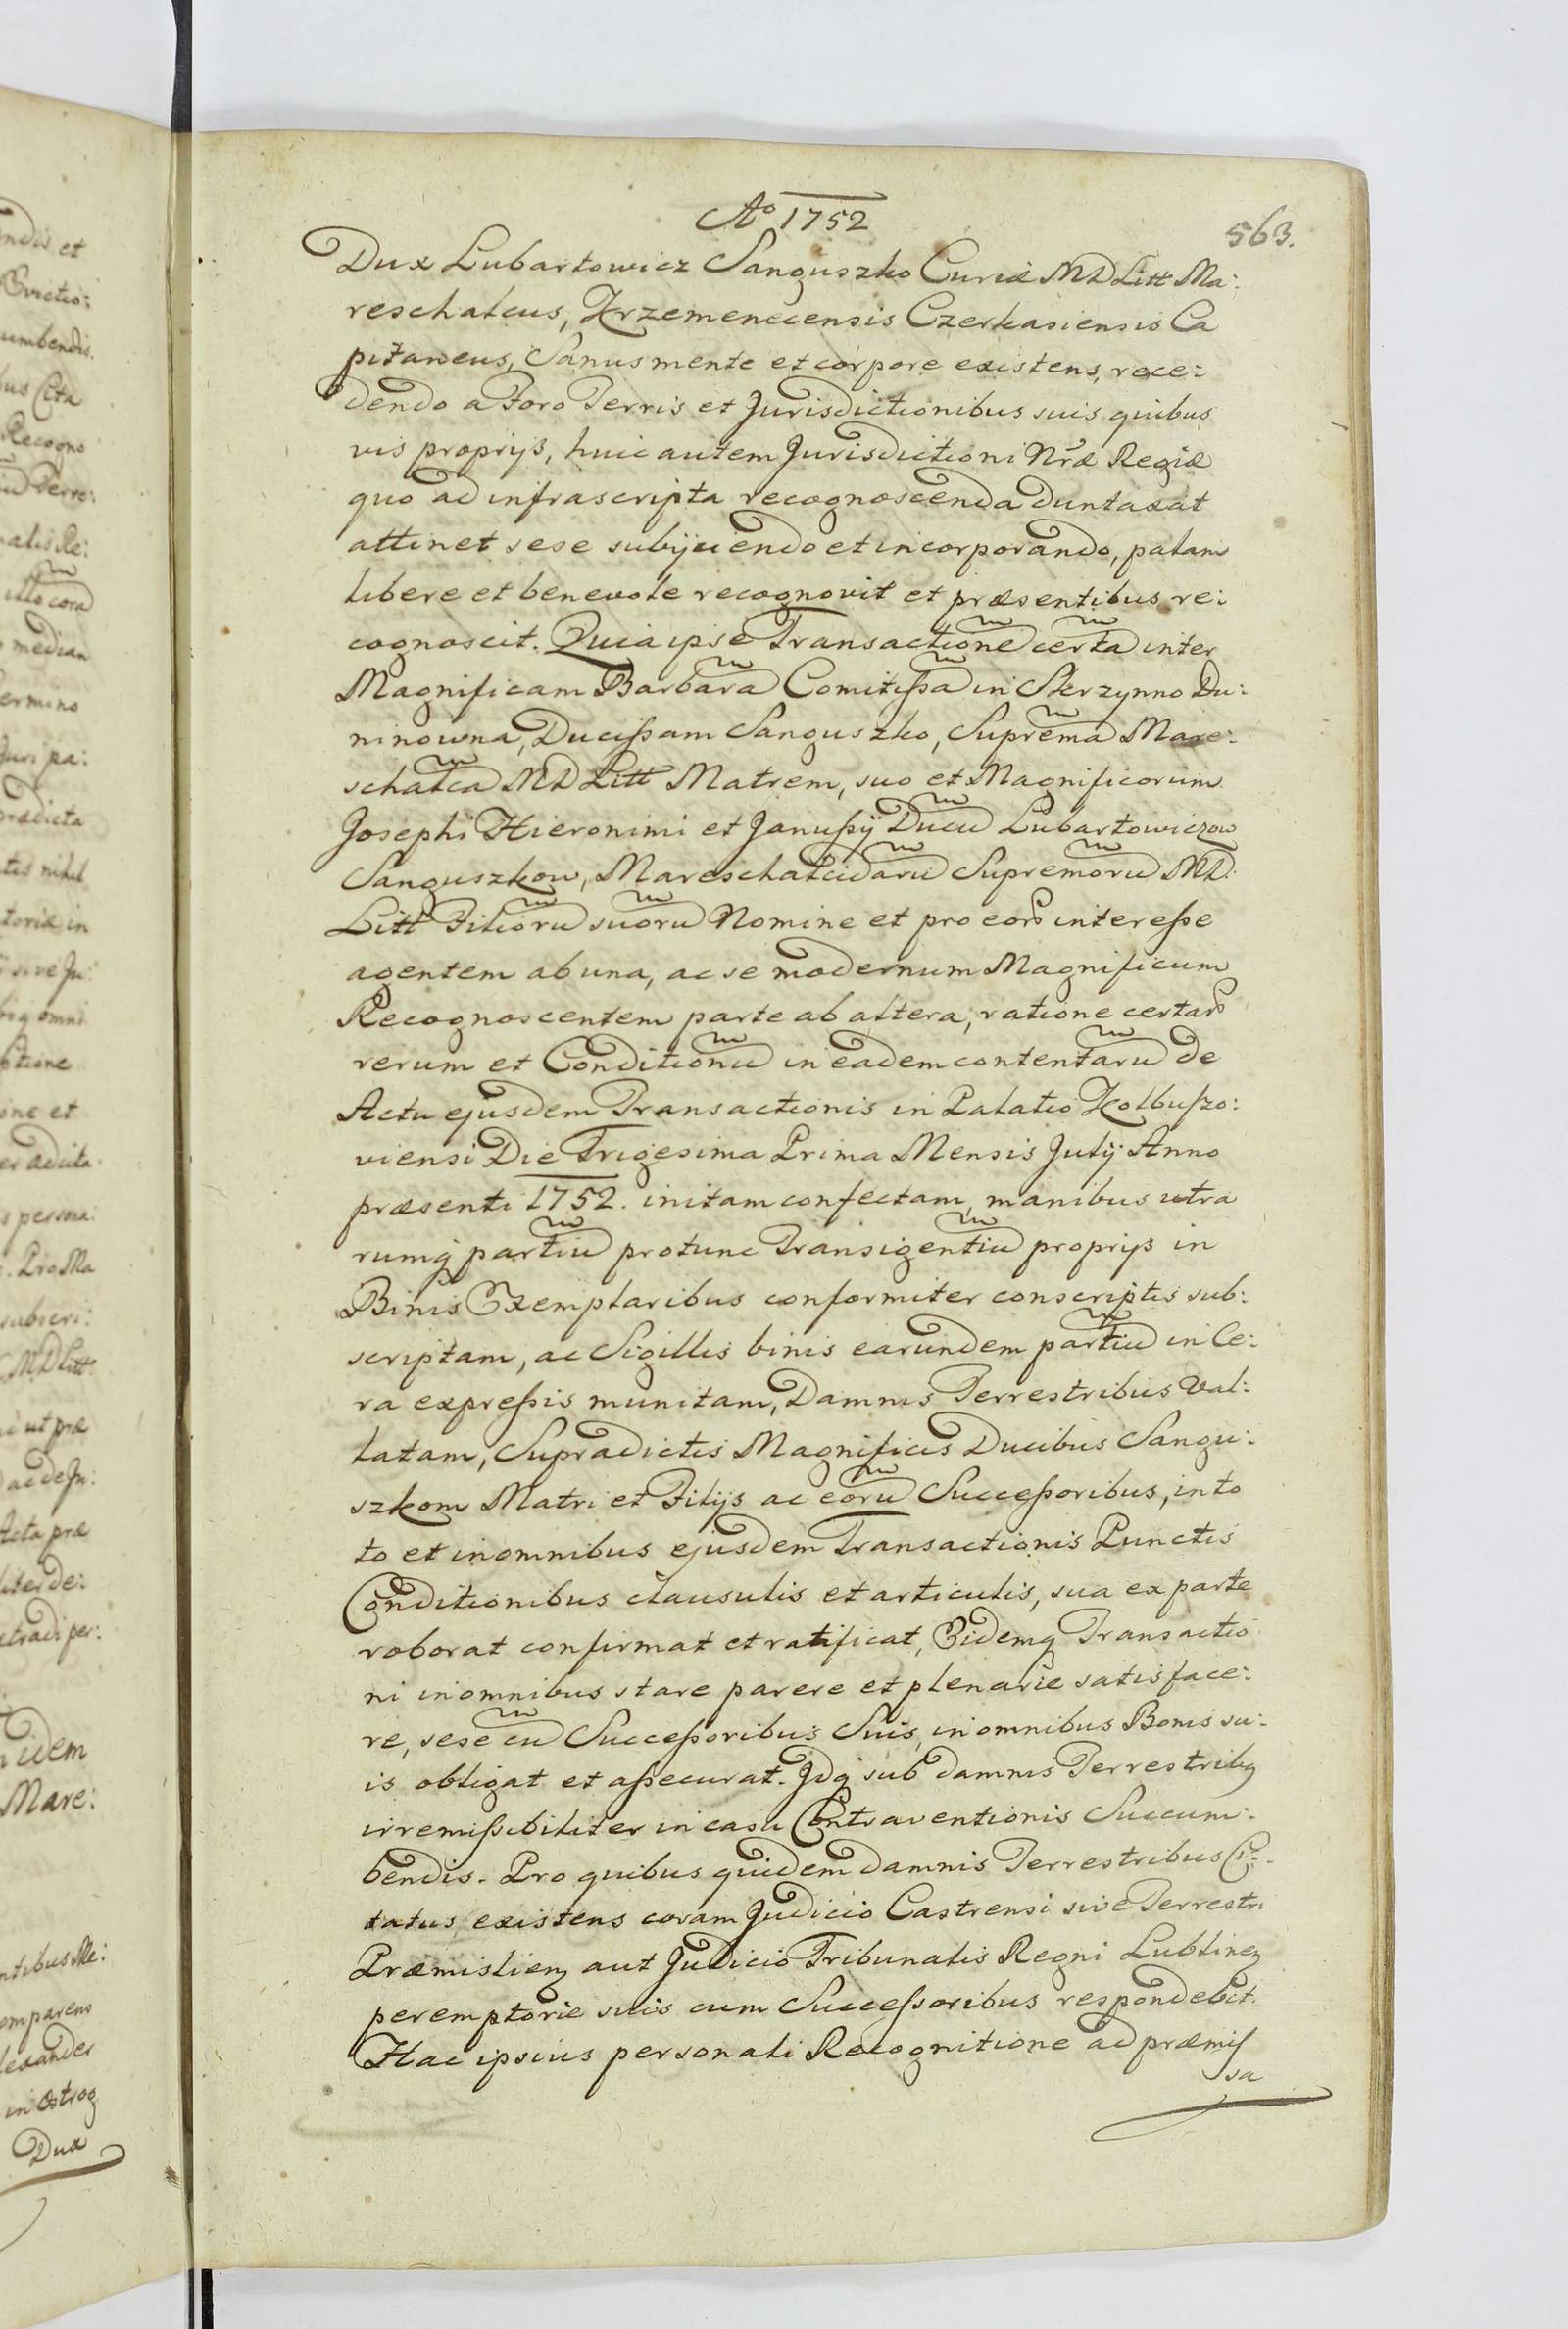 Aº 1752
563.
Dux Lubartowicz Sanguszko Curiæ MD Litt Ma:
reschalcus, Krzemenecensis Czerkasiensis Ca
pitaneus, Sanus mente et corpore existens, rece:
dendo a Foro Terris et Jurisdictionibus suis quibus
vis proprijs, huic autem Jurisdictioni Nr̃æ Regiæ
quo ad infrascripta recognoscenda duntaxat
attinet sese subijciendo et incorporando, palam
libere et benevole recognovit et præsentibus re:
cognoscit. Quia ipse Transactionẽ certã inter
Magnificam Barbarã Comitißã in Skrzynno Du:
ninowna, Ducißam Sanguszko, Supremã Mare:
schalcã MD Litt Matrem, suo et Magnificorum
Josephi Hieronimi et Janußÿ Ducũ Lubartowiczow
Sanguszkow, Mareschalcidarũ Supremorũ MD.
Litt Filiorũ suorũ Nomine et pro eorꝫ intereße
agentem ab una, ac se modernum Magnificum
Recognoscentem parte ab altera, ratione certarꝫ
rerum et Conditionũ in eadem contentarũ de
Actu ejusdem Transactionis in Palatio Kolbußo:
viensi Die Trigesima Prima Mensis Julÿ Anno
præsenti 1752. initam confectam, manibus utra
rumq̃ partiũ protunc Transigentiũ proprijs in
Binis Exemplaribus conformiter conscriptis sub:
scriptam, ac Sigillis binis earundem partiũ in Ce:
ra expreßis munitam, Damnis Terrestribus Val:
latam, Supradictis Magnificis Ducibus Sangu:
szkom Matri et Filijs ac eorũ Succeßoribus, in to
to et in omnibus ejusdem Transactionis Punctis
Conditionibus clausulis et articulis, sua ex parte
roborat confirmat et ratificat, Eidemq Transactio
ni in omnibus stare parere et plenarie satisface:
re, sese cũ Succeßoribus Suis, in omnibus Bonis su:
is obligat et aßecurat. Jdq̃ sub damnis Terrestribꝫ
irremißibiliter in casu Contraventionis Succum:
bendis. Pro quibus quidem damnis Terrestribus Ci:
tatus, existens coram Judicio Castrensi sive Terrestri
Præmislienꝫ aut Judicio Tribunalis Regni Lublinenꝫ
peremptorie suis cum Succeßoribus respondebit.
Hac ipsius personali Recognitione ad præmis
sa